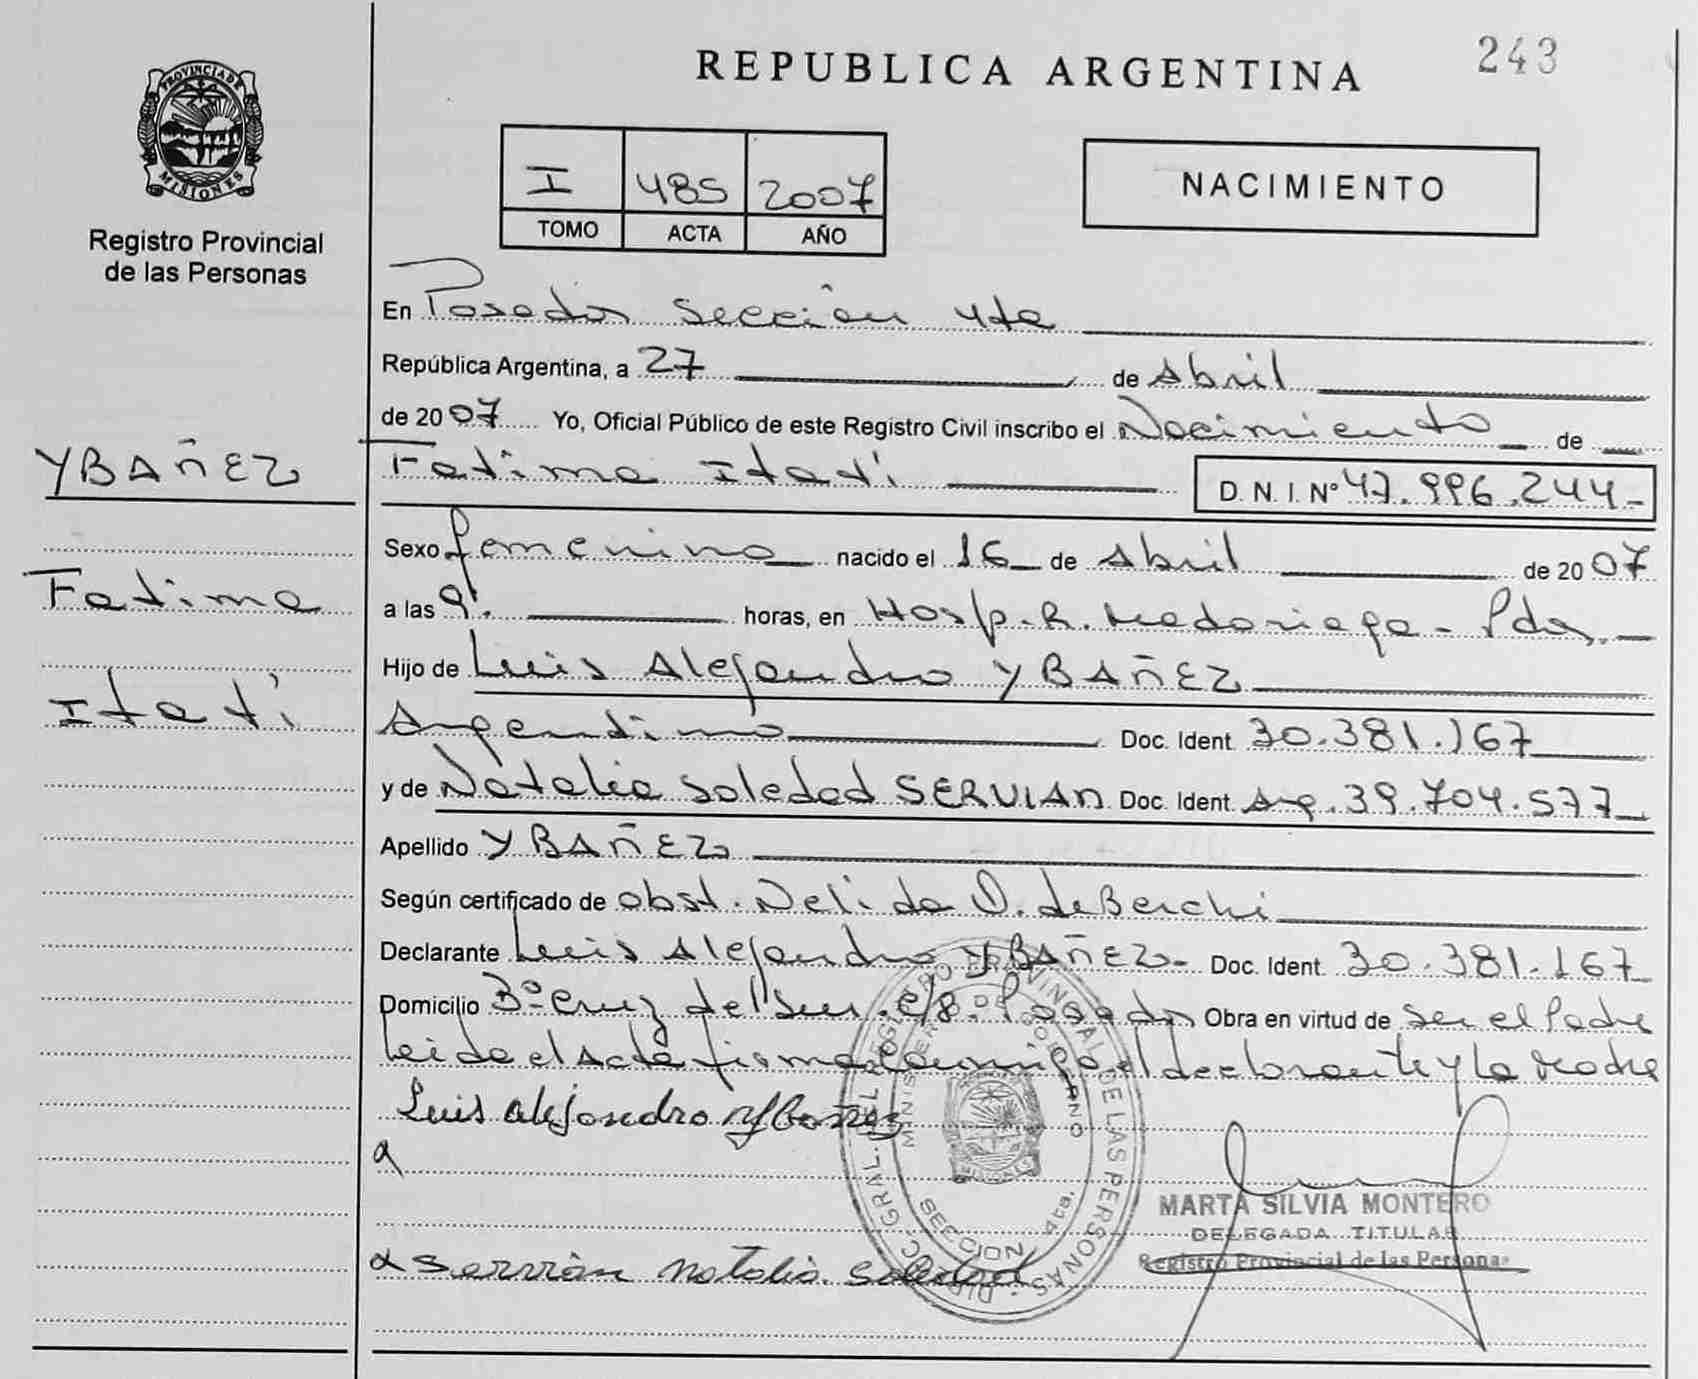 243
REPUBLICA ARGENTINA
PROVINCIA DE MISIONES
Registro Provincial
de las Personas
I 485 2007
TOMO ACTA AÑO
NACIMIENTO
En Posadas Sección 4ta
República Argentina, a 27 de Abril
de 2007 Yo, Oficial Público de este Registro Civil inscribo el Nacimiento de
YBAÑEZ
Fatima Itatí D. N. I. Nº 47.996.244-
Sexo femenino nacido el 16 de Abril de 2007
Fatima
a las 9. horas, en Hosp. R. Madariaga - Pdas.
Hijo de Luis Alejandro YBAÑEZ
Itatí
Argentino Doc. Ident. 30.381.167
y de Natalia Soledad SERVIAN Doc. Ident. Arg. 39.704.577
Apellido YBAÑEZ
Según certificado de obst. Nelida O. de Berchi
Declarante Luis Alejandro YBAÑEZ- Doc. Ident. 30.381.167
Domicilio Bº Cruz del Sur. c/8. Posadas Obra en virtud de ser el Padre
Leida el Acta firma conmigo el declarante y la Madre
Luis alejandro Ybañez
MARTA SILVIA MONTERO
DELEGADA TITULAR
Registro Provincial de las Personas
Servián Natalia Soledad
DIREC. GRAL. DEL REGISTRO PROVINCIAL DE LAS PERSONAS
MINISTERIO DE GOBIERNO
MISIONES
SECCION 4ta.